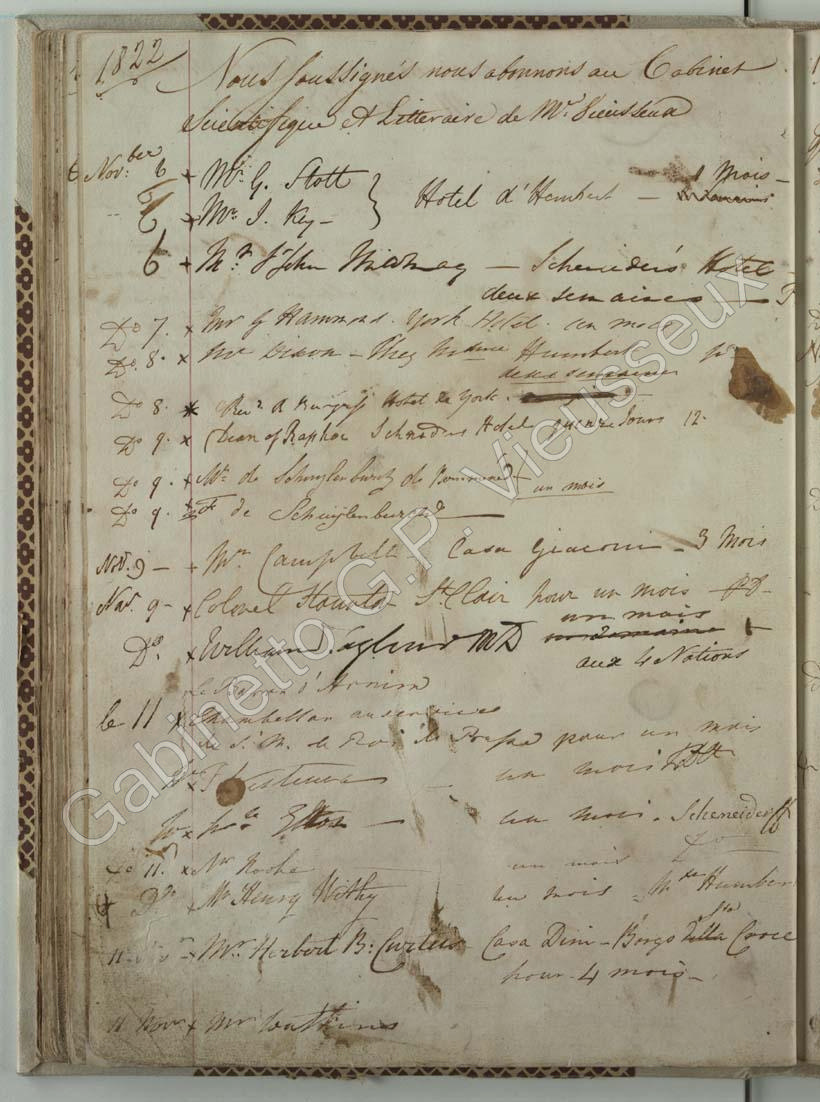 1822
Nous soussignés nous abonnons au Cabinet
Scientifique et Litteraire de Mr Vieusseux
6 Novber 6 x Mr G. Stott } Hotel d'Hembert — 1 Mois —
6 x Mr J. Key —
6 x Mr St John — Schneider's Hotel
deux semaines —
Do 7. x Mr G Hammond. York Hotel. un mois
Do 8. x Mr Dixon — Chez Madame Humbert
deux semaines
Do 8. x Revd R Burgess Hotel de York.
Do 9. x Dean of Raphoe Schneiders Hotel quinze Jours 12.
Do 9. x Mr de Schuylenburg de un mois
Do 9. x F de Schuylenburg
Nov. 9 — x Mr Campbell Casa Giacomi — 3 Mois
Nov. 9 — x Colonel St Clair pour un mois — PD —
un mois
Do. x William MD
aux 4 Nations
Le Baron d'Arnim
le 11 x Chambellan au service
de S. M. le Roi de Prusse pour un mois
x — un mois
x Elton — un mois. Schneiderff
Do 11. x Mr Roche un mois Do
Do x Mr Henry Withy un mois — Mde Humber
11 x Mr Herbert B: Curteis Casa Dini — Borgo Sta Croce
pour 4 mois —
11 Novr x Mr Watkins
Gabinetto G.P. Vieusseux